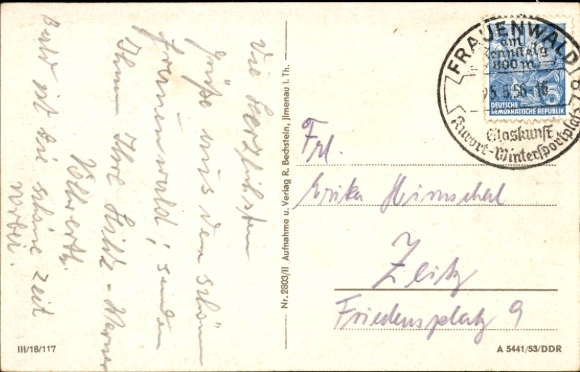 Die herzlichsten
Grüße aus dem schönen
Frauenwald, senden
Ihnen Ihre Hilde - Werner
Bald ist die schöne Zeit
vorbei.
Nr. 2803/II Aufnahme u. Verlag R. Bechstein, Jlmenau i. Th.
FRAUENWALD
am
Rennsteig
800 m
5.56
Glaskunst
Kurort-Wintersportplatz
5
DEUTSCHE
DEMOKRATISCHE REPUBLIK
Frl.
Erika
Zeitz
Friedensplatz 9
III/18/117
A 5441/53/DDR